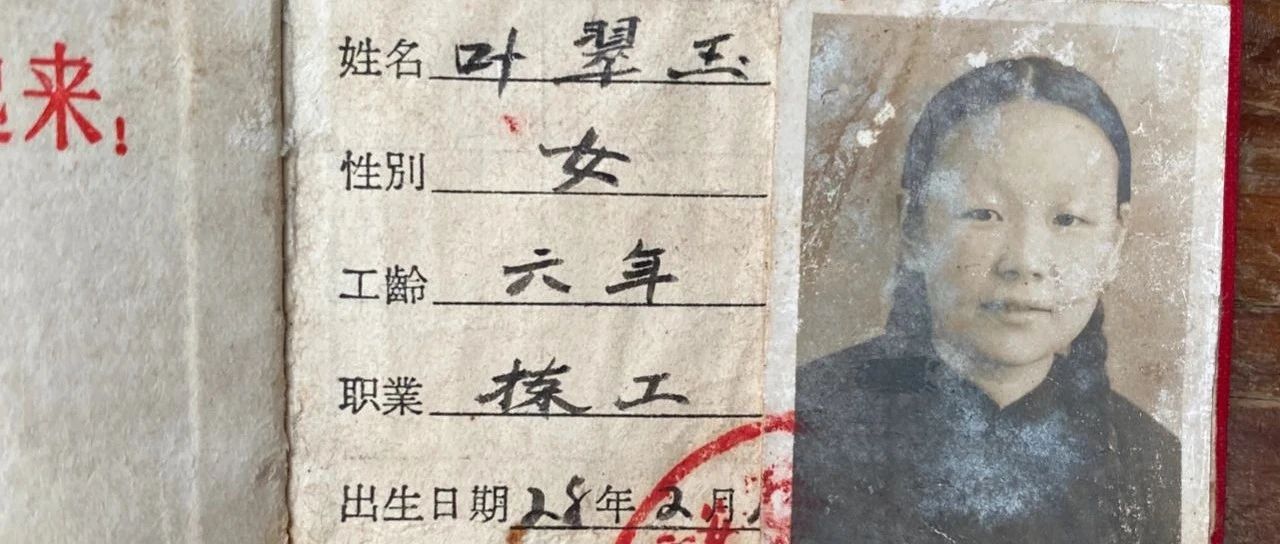 来!
姓名 叶翠玉
性别 女
工齡 六年
职業 拣工
出生日期 28年2月